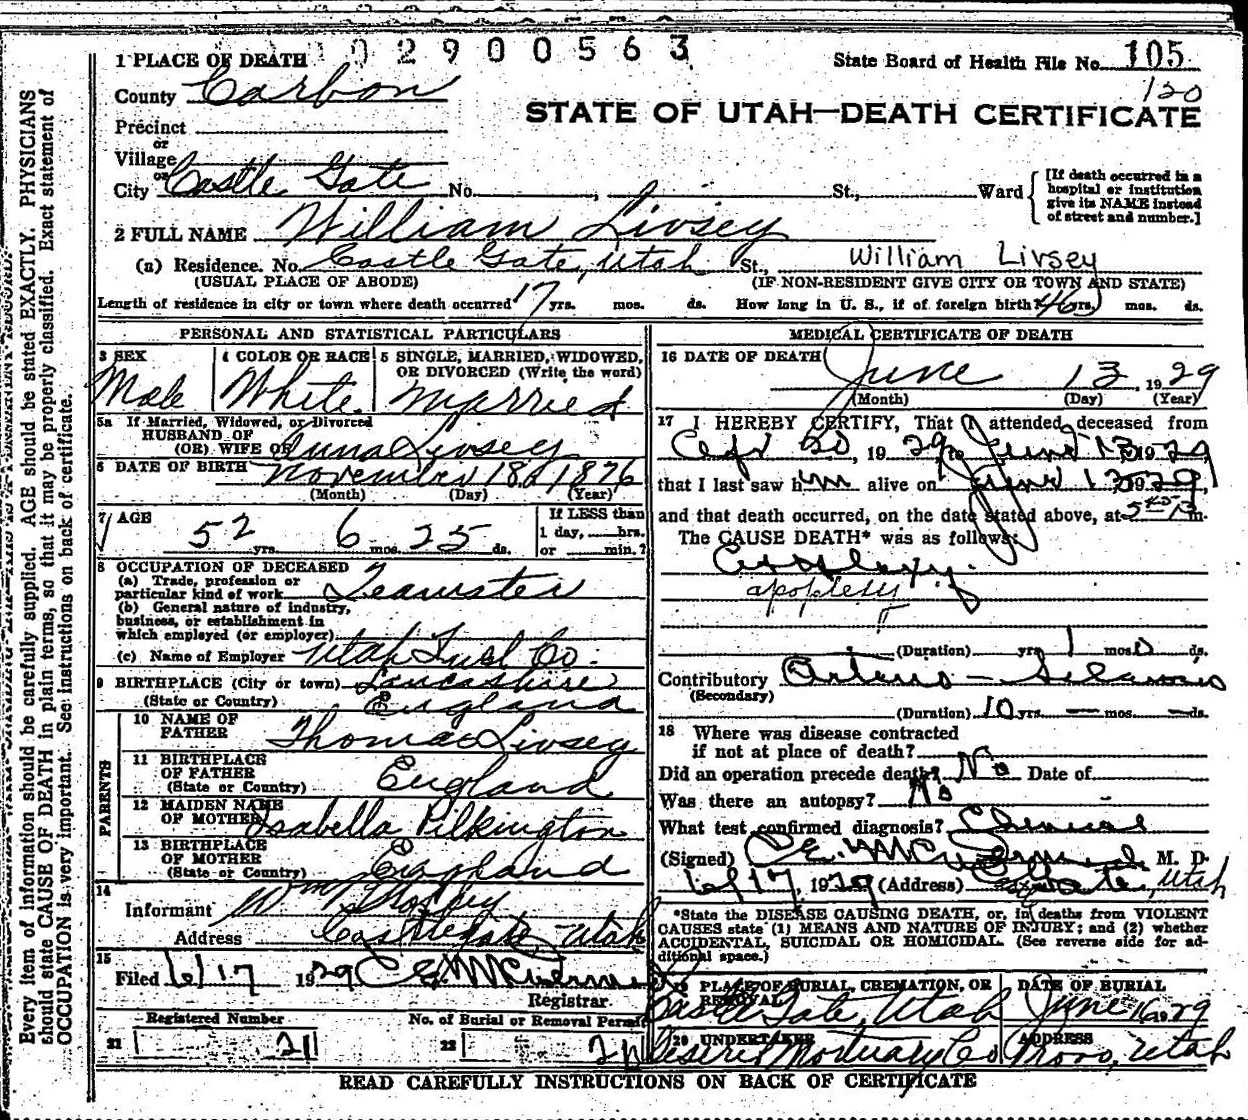 02900563
1 PLACE OF DEATH
State Board of Health File No. 105
130
County Carbon
STATE OF UTAH—DEATH CERTIFICATE
Precinct
or
Village
or
City Castle Gate No. , St., Ward
[If death occurred in a hospital or institution give its NAME instead of street and number.]
2 FULL NAME William Livsey
(a) Residence. No. Castle Gate, Utah St., William Livsey
(USUAL PLACE OF ABODE) (IF NON-RESIDENT GIVE CITY OR TOWN AND STATE)
Length of residence in city or town where death occurred 17 yrs. mos. ds. How long in U. S., if of foreign birth? yrs. mos. ds.
PERSONAL AND STATISTICAL PARTICULARS
3 SEX
Male
4 COLOR OR RACE
White
5 SINGLE, MARRIED, WIDOWED, OR DIVORCED (Write the word)
Married
5a If Married, Widowed, or Divorced
HUSBAND OF
(OR) WIFE OF Anna Livsey
6 DATE OF BIRTH November 18 1876
(Month) (Day) (Year)
7 AGE
52 yrs. 6 mos. 25 ds.
If LESS than
1 day, hrs.
or min.?
8 OCCUPATION OF DECEASED
(a) Trade, profession or
particular kind of work Teamster
(b) General nature of industry,
business, or establishment in
which employed (or employer)
(c) Name of Employer Utah Fuel Co.
9 BIRTHPLACE (City or town) Lancashire
(State or Country) England
PARENTS
10 NAME OF FATHER Thomas Livsey
11 BIRTHPLACE OF FATHER
(State or Country) England
12 MAIDEN NAME OF MOTHER Isabella Pilkington
13 BIRTHPLACE OF MOTHER
(State or Country) England
14
Informant Wm
Address Castle Gate Utah
15
Filed 6/17 1929
Registrar.
Registered Number
21 21
No. of Burial or Removal Permit
22 21
MEDICAL CERTIFICATE OF DEATH
16 DATE OF DEATH
June 13, 1929
(Month) (Day) (Year)
17 I HEREBY CERTIFY, That I attended deceased from
20, 1929 to June 13 1929,
that I last saw him alive on June 13 1929,
and that death occurred, on the date stated above, at m.
The CAUSE DEATH* was as follows:
Apoplexy.
apoplexy
(Duration) yrs. 1 mos. 0 ds.
Contributory Arterio-Sclerosis
(Secondary)
(Duration) 10 yrs. — mos. — ds.
18 Where was disease contracted
if not at place of death?
Did an operation precede death? No Date of
Was there an autopsy? No
What test confirmed diagnosis? Clinical
(Signed) M. D.
6/17, 1929 (Address) Castle Gate, Utah
*State the DISEASE CAUSING DEATH, or, in deaths from VIOLENT
CAUSES state (1) MEANS AND NATURE OF INJURY; and (2) whether
ACCIDENTAL, SUICIDAL OR HOMICIDAL. (See reverse side for ad-
ditional space.)
19 PLACE OF BURIAL, CREMATION, OR REMOVAL
Castle Gate, Utah
DATE OF BURIAL
June 16 1929
20 UNDERTAKER
Deseret Mortuary Co
ADDRESS
Provo, Utah
READ CAREFULLY INSTRUCTIONS ON BACK OF CERTIFICATE
Every item of information should be carefully supplied. AGE should be stated EXACTLY. PHYSICIANS
should state CAUSE OF DEATH in plain terms, so that it may be properly classified. Exact statement of
OCCUPATION is very important. See instructions on back of certificate.